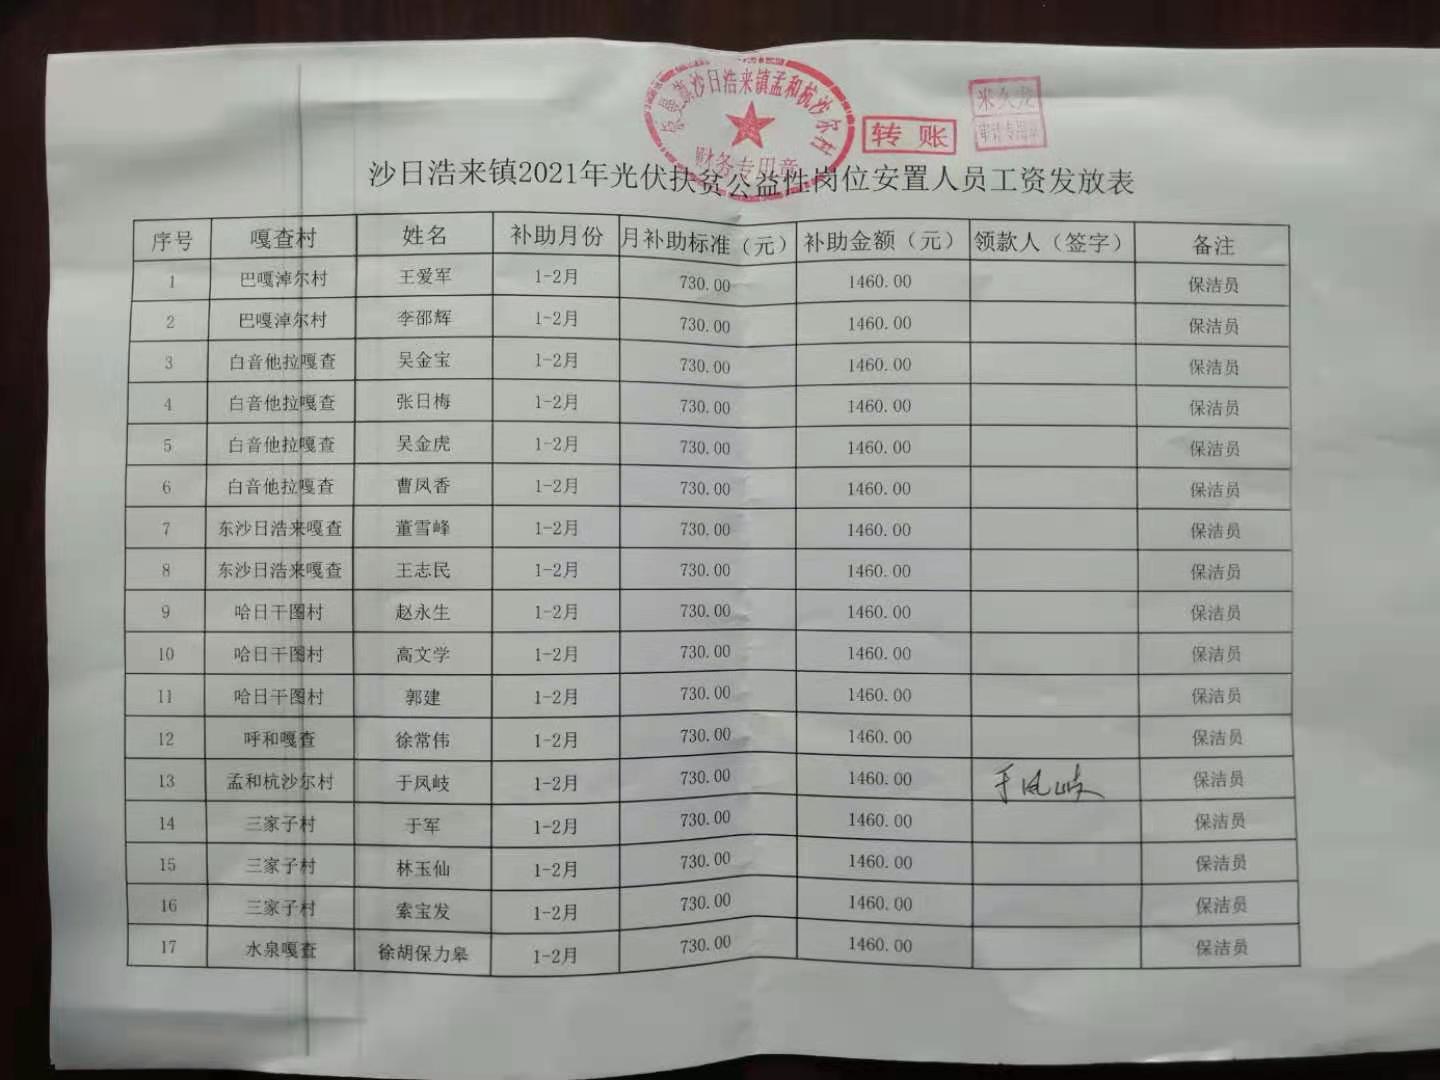 库伦旗沙日浩来镇孟和杭沙尔村
财务专用章
转账
米久龙
审计专用章
沙日浩来镇2021年光伏扶贫公益性岗位安置人员工资发放表
序号 嘎查村 姓名 补助月份 月补助标准（元） 补助金额（元） 领款人（签字） 备注
1 巴嘎淖尔村 王爱军 1-2月 730.00 1460.00 保洁员
2 巴嘎淖尔村 李邵辉 1-2月 730.00 1460.00 保洁员
3 白音他拉嘎查 吴金宝 1-2月 730.00 1460.00 保洁员
4 白音他拉嘎查 张日梅 1-2月 730.00 1460.00 保洁员
5 白音他拉嘎查 吴金虎 1-2月 730.00 1460.00 保洁员
6 白音他拉嘎查 曹凤香 1-2月 730.00 1460.00 保洁员
7 东沙日浩来嘎查 董雪峰 1-2月 730.00 1460.00 保洁员
8 东沙日浩来嘎查 王志民 1-2月 730.00 1460.00 保洁员
9 哈日干图村 赵永生 1-2月 730.00 1460.00 保洁员
10 哈日干图村 高文学 1-2月 730.00 1460.00 保洁员
11 哈日干图村 郭建 1-2月 730.00 1460.00 保洁员
12 呼和嘎查 徐常伟 1-2月 730.00 1460.00 保洁员
13 孟和杭沙尔村 于凤岐 1-2月 730.00 1460.00 于凤岐 保洁员
14 三家子村 于军 1-2月 730.00 1460.00 保洁员
15 三家子村 林玉仙 1-2月 730.00 1460.00 保洁员
16 三家子村 索宝发 1-2月 730.00 1460.00 保洁员
17 水泉嘎查 徐胡保力皋 1-2月 730.00 1460.00 保洁员